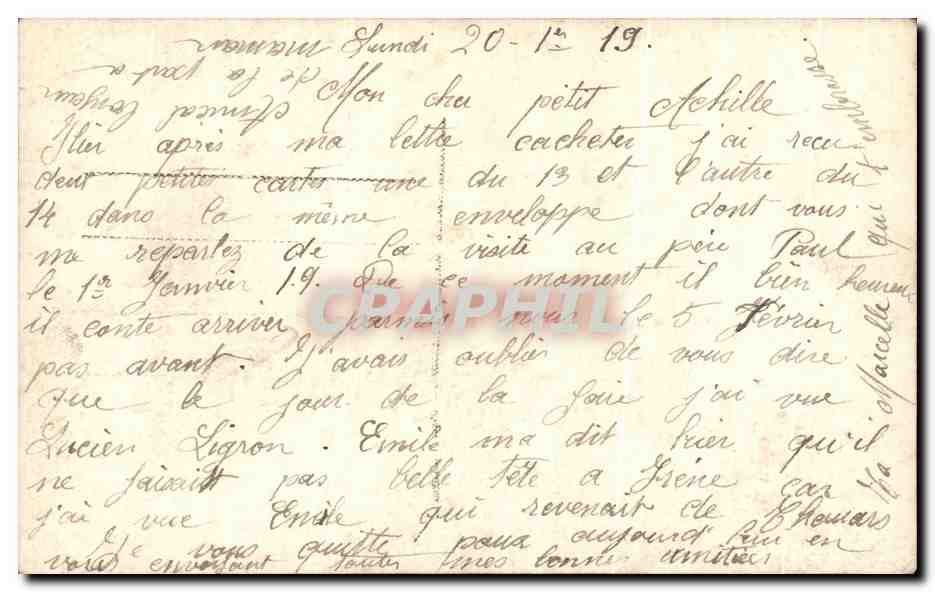 Lundi 20 - 1er 19.
Mon cher petit Achille
Hier après ma lettre cacheter j'ai recu
deux petites cartes une du 13 et l'autre du
14 dans la même enveloppe dont vous
me reparlez de la visite au père Paul
le 1er Janvier 19. Que ce moment il bien heureux
il conte arriver parmis nous le 5 Février
pas avant. J'avais oublier de vous dire
que le jour de la foire j'ai vue
Lucien Ligron. Emile ma dit hier qu'il
ne faisait pas belle tête a Irène car
j'ai vue Emile qui revenait de Thouars
Je vous quitte pour aujourd'hui en
vous envoyant toutes mes bonnes amitiés
Ta Marcelle qui t'embrasse
Amical bonjour
de la part a
maman
CRAPHIL